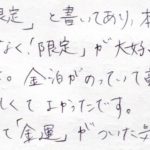 限定」と書いてあり、本
なく「限定」が大好
。金泊がのっていて
しくてよかったです。
て「金運」がついた